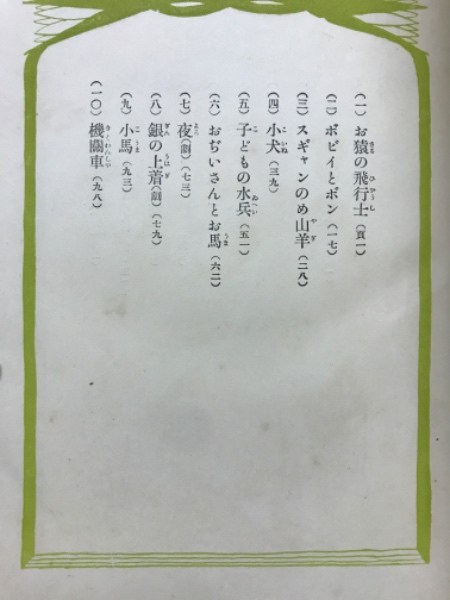 (一) お猿の飛行士 (頁一)
(二) ボビイとポン (一七)
(三) スギャンのめ山羊 (二八)
(四) 小犬 (三九)
(五) 子どもの水兵 (五一)
(六) おぢいさんとお馬 (六二)
(七) 夜 (劇) (七三)
(八) 銀の上着 (劇) (七九)
(九) 小馬 (九三)
(一〇) 機關車 (九八)